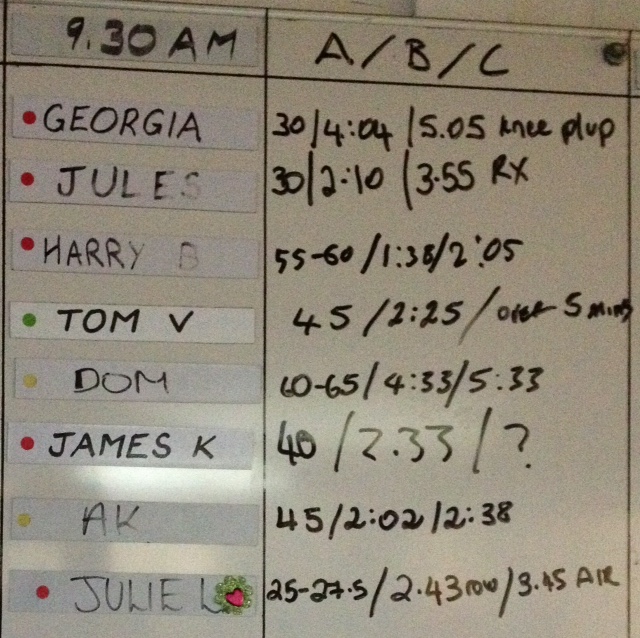 9.30 AM A/B/C
GEORGIA 30/4:04/5.05 knee plup
JULES 30/2:10/3.55 RX
HARRY B 55-60/1:38/2:05
TOM V 45/2:25/over 5 mins
DOM 60-65/4:33/5:33
JAMES K 40/2.33/?
AK 45/2:02/2:38
JULIE L 25-27.5/2.43 row/3.45 AIR